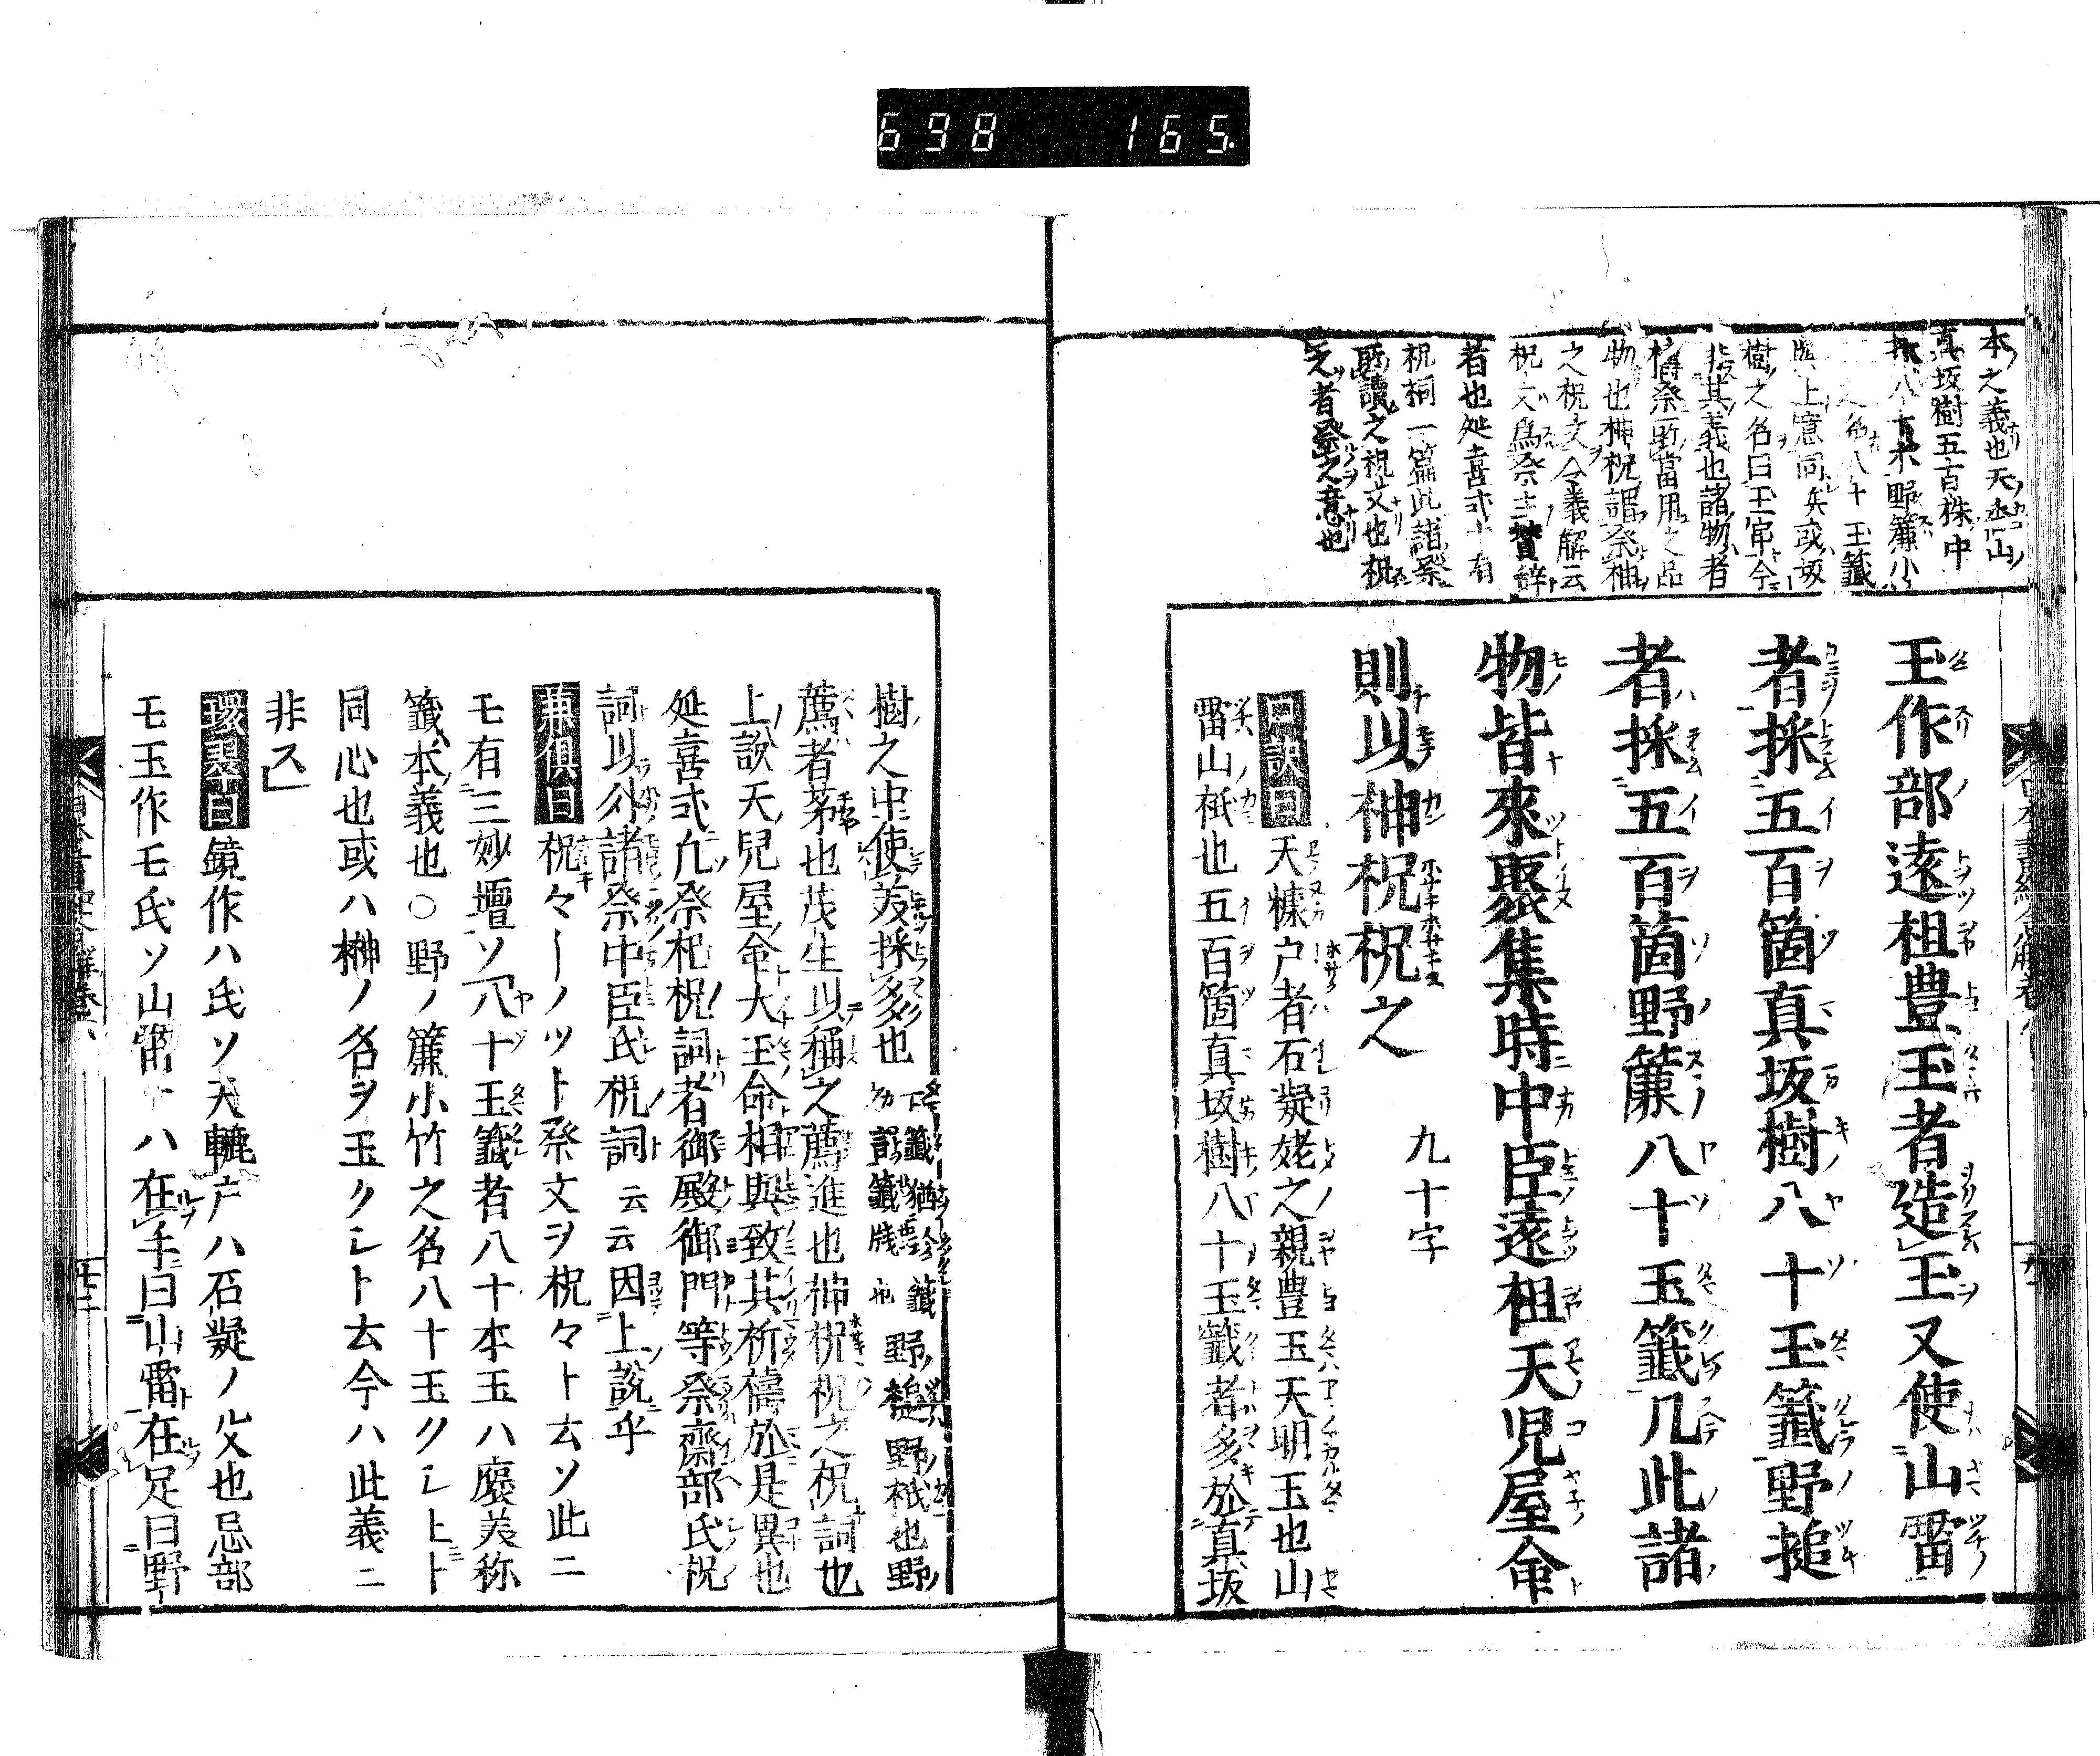 698 165.
本之義也天香山
真坂樹五百株中
採八十木野簾小
之名八十玉籤
與上意同矣或坂
樹之名曰玉串今
非其義也諸物者
禱祭所當用之品
物也神祝謂祭神
之祝文令義解云
祝文為祭主贊辞
者也延喜式十有
祝祠一篇此諸祭
所讀之祝文也祝
之者發之意也
玉作部遠祖豊玉者造玉又使山雷
者採五百箇真坂樹八十玉籤野槌
者採五百箇野簾八十玉籤凡此諸
物皆來聚集時中臣遠祖天児屋命
則以神祝祝之 九十字
口訣曰天糠户者石凝姥之親豊玉天明玉也山
雷山祇也五百箇真坂樹八十玉籤者多於真坂
樹之中使美採多也 下籤猶今籤訓籤牋也 野槌野祇也野
薦者茅也茂生以稱之薦進也神祝祝之祝詞也
上說天兒屋命大玉命相與致其祈禱於是異也
延喜式凡祭祀祝詞者御殿御門等祭齋部氏祝
詞以外諸祭中臣氏祝詞云云因上說乎
兼俱曰祝々ーノツト祭文ヲ祝々ト云ソ此ニ
モ有三妙壇ソ八十玉籤者八十本玉ハ褒美称
籤本義也○野ノ簾小竹之名八十玉クシト
同心也或ハ榊ノ名ヲ玉クシト云今ハ此義ニ
非ス
環翠曰鏡作ハ氏ソ天糠户ハ石凝ノ父也忌部
モ玉作モ氏ソ山雷ーハ在手曰山雷在足曰野